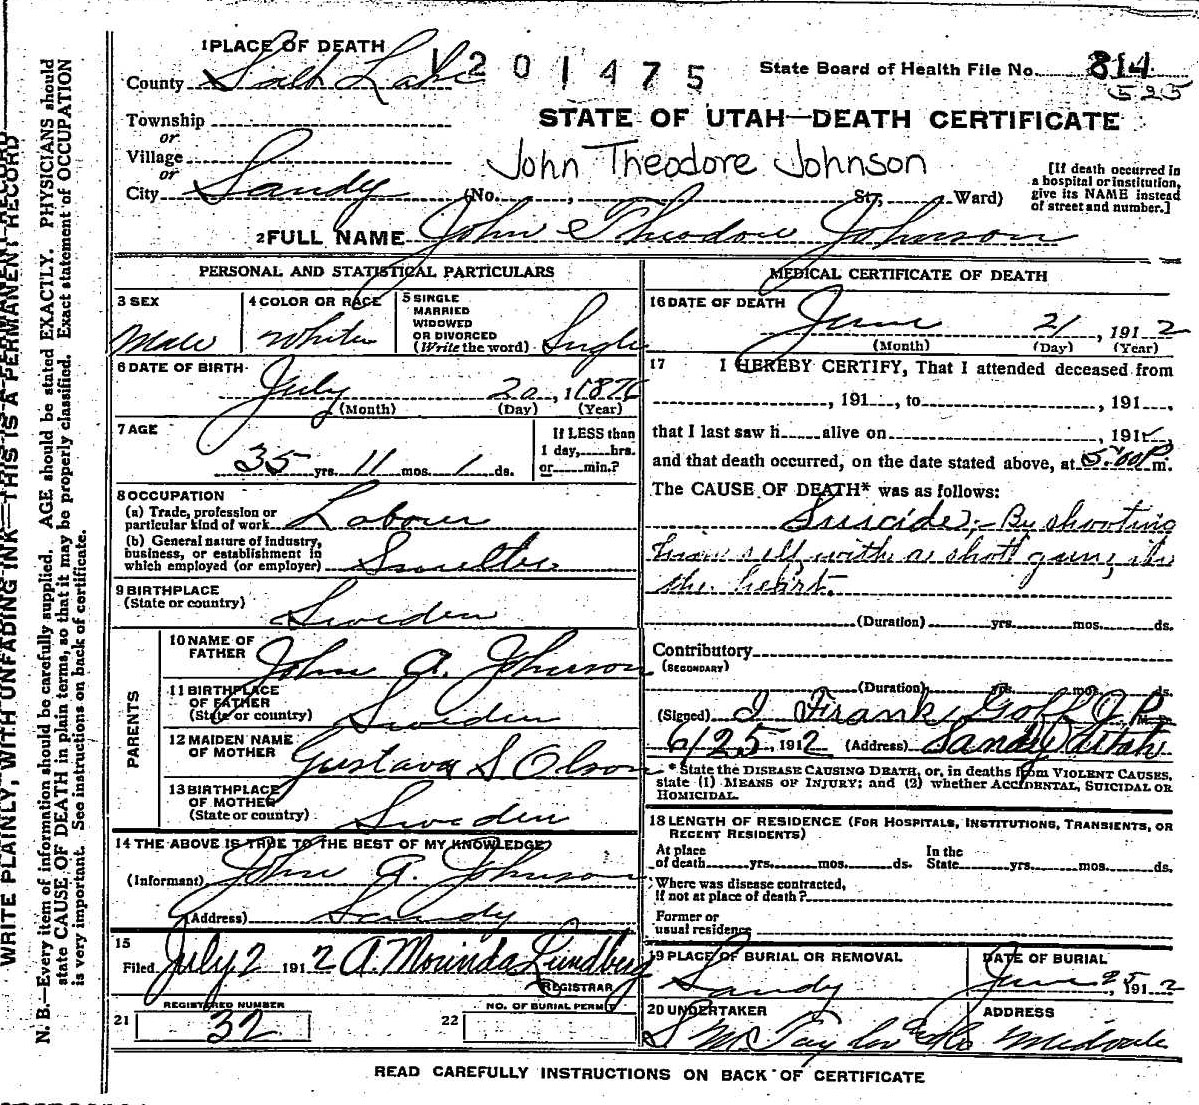 1 PLACE OF DEATH
County Salt Lake
1201475
State Board of Health File No. 814
525
Township
or
Village
or
City Sandy (No. , St; Ward)
STATE OF UTAH—DEATH CERTIFICATE
John Theodore Johnson
[If death occurred in
a hospital or institution,
give its NAME instead
of street and number.]
2 FULL NAME John Theodore Johnson
PERSONAL AND STATISTICAL PARTICULARS
3 SEX
Male
4 COLOR OR RACE
White
5 SINGLE
MARRIED
WIDOWED
OR DIVORCED
(Write the word) Single
6 DATE OF BIRTH
July 20, 1876
(Month) (Day) (Year)
7 AGE
35 yrs. 11 mos. 1 ds.
If LESS than
1 day, hrs.
or min.?
8 OCCUPATION
(a) Trade, profession or
particular kind of work Labour
(b) General nature of industry,
business, or establishment in
which employed (or employer) Smelter
9 BIRTHPLACE
(State or country)
Sweden
PARENTS
10 NAME OF
FATHER John A. Johnson
11 BIRTHPLACE
OF FATHER
(State or country) Sweden
12 MAIDEN NAME
OF MOTHER Gustava S Olson
13 BIRTHPLACE
OF MOTHER
(State or country) Sweden
14 THE ABOVE IS TRUE TO THE BEST OF MY KNOWLEDGE
(Informant) John A. Johnson
(Address) Sandy
15
Filed July 2 1912 A. Morinda Lundberg
REGISTRAR
REGISTERED NUMBER
21 32
NO. OF BURIAL PERMIT
22
MEDICAL CERTIFICATE OF DEATH
16 DATE OF DEATH
June 21, 1912
(Month) (Day) (Year)
17 I HEREBY CERTIFY, That I attended deceased from
, 191 , to , 191 .
that I last saw h alive on , 191 ,
and that death occurred, on the date stated above, at 5:00P m.
The CAUSE OF DEATH* was as follows:
Suicide;- By shooting
himself with a shot gun, in
the heart.
(Duration) yrs. mos. ds.
Contributory
(SECONDARY)
(Duration) yrs. mos. ds.
(Signed) I Frank Goff J.P. M. D.
6/25, 1912 (Address) Sandy Utah
* State the DISEASE CAUSING DEATH, or, in deaths from VIOLENT CAUSES,
state (1) MEANS OF INJURY; and (2) whether ACCIDENTAL, SUICIDAL OR
HOMICIDAL.
18 LENGTH OF RESIDENCE (FOR HOSPITALS, INSTITUTIONS, TRANSIENTS, OR
RECENT RESIDENTS)
At place
of death yrs. mos. ds.
In the
State yrs. mos. ds.
Where was disease contracted,
If not at place of death?
Former or
usual residence
19 PLACE OF BURIAL OR REMOVAL
Sandy
DATE OF BURIAL
June 25, 1912
20 UNDERTAKER
S M Taylor & Co
ADDRESS
Midvale
READ CAREFULLY INSTRUCTIONS ON BACK OF CERTIFICATE
WRITE PLAINLY, WITH UNFADING INK—THIS IS A PERMANENT RECORD
N. B.—Every item of information should be carefully supplied. AGE should be stated EXACTLY. PHYSICIANS should
state CAUSE OF DEATH in plain terms, so that it may be properly classified. Exact statement of OCCUPATION
is very important. See instructions on back of certificate.